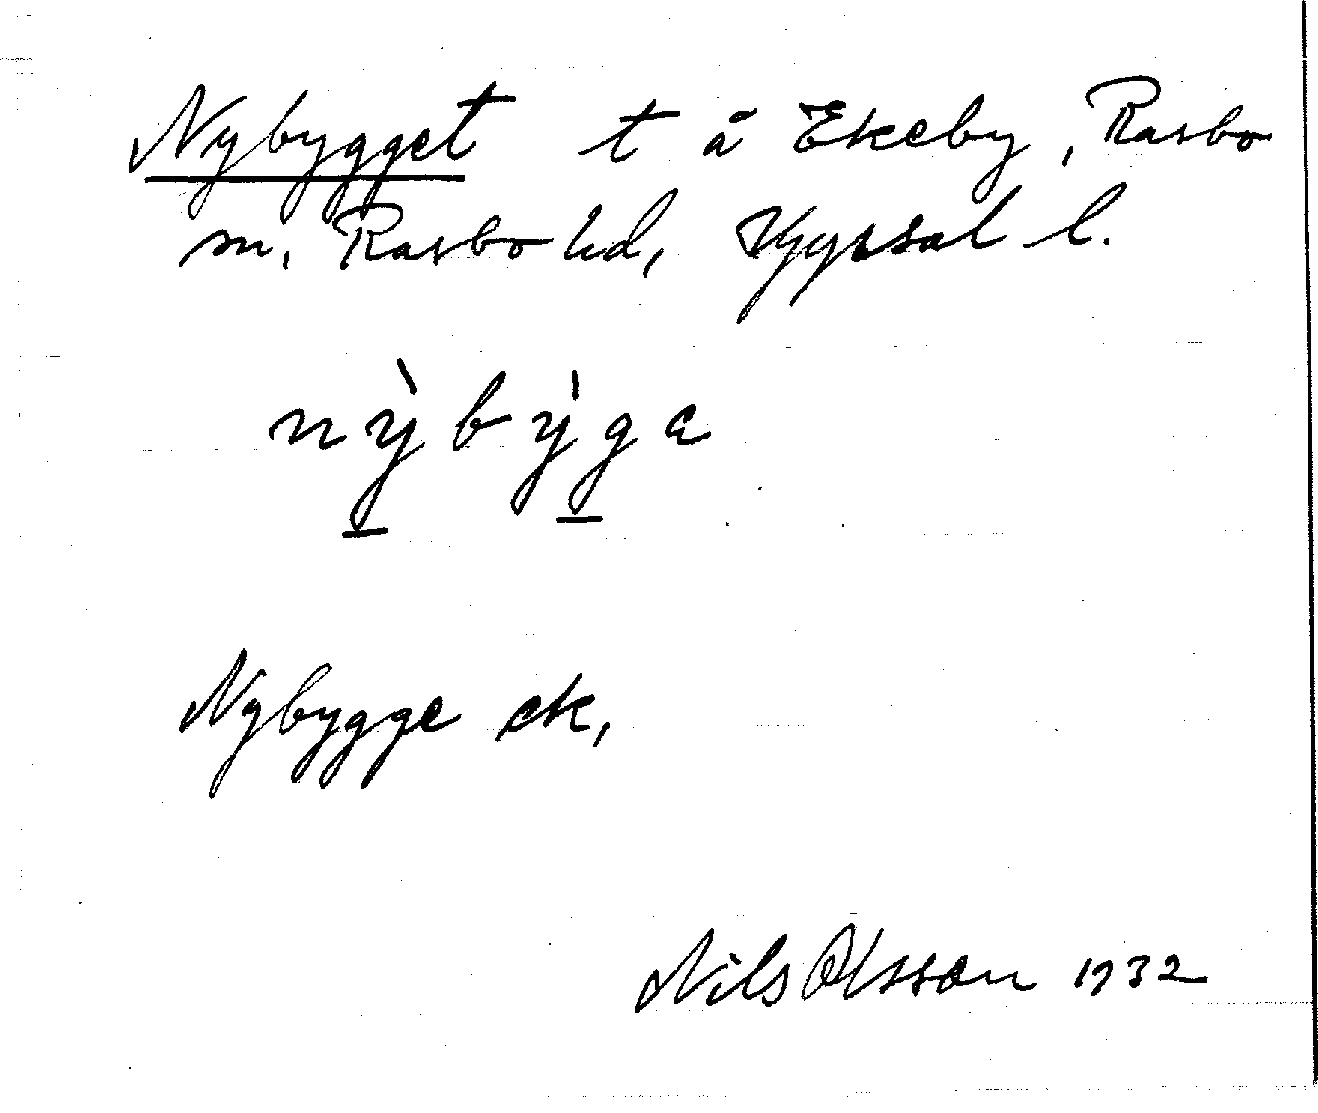 Nybygget t å Ekeby, Rasbo
sn, Rasbo hd, Uppsal l.
nỳbỳga
Nybygge ek,
Nils Olsson 1932